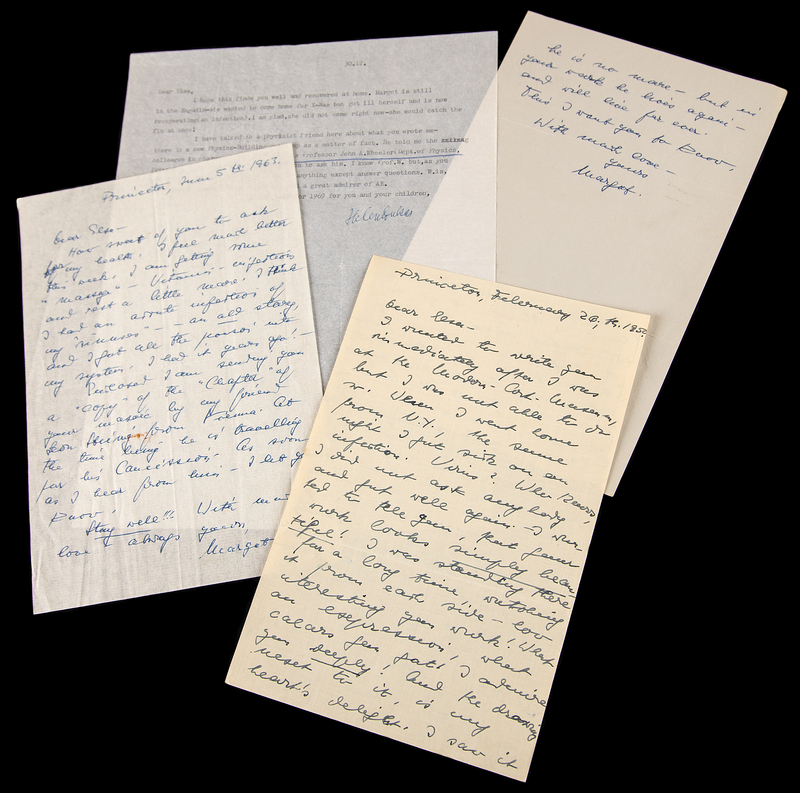 30.12.
Dear Ilse,
I hope this finds you well and recovered at home. Margot is still
in the Hospital-she wanted to come home for X-Mas but got ill herself and is now
recuperating, an infection. I am glad, she did not come right now-she would catch the
flu at once!
I have talked to a physicist friend here about what you wrote me-
there is a new Physics-Building as a matter of fact. He told me the
colleague in Professor John A.Wheeler, Dept. of Physics,
to ask him. I know Prof.W. but, as you
anything except answer questions. W.is,
a great admirer of AE.
1969 for you and your children,
he is no more – but in
your work he lives again –
and will live for ever.
This I want you to know.
With much love –
yours
Margot.
Princeton, June 5th. 1963.
Dear
How sweet of you to ask
for my health. I feel much better
this week. I am getting some
"massage" – Vitamin – injections
and rest a little more. I think
I had an acute infection of
my "sinuses" – an old story,
and I got all the poison into
my system. I had it years ago! –
Inclosed I am sending you
a "copy" of the "Chapter" of
your mosaic by my friend
from Vienna. At
the time being he is travelling
for his "Concessions". As soon
as I hear from him – I let you
know!
Stay well!! With much
love & always yours,
Margot
Princeton, February 26, th.
Dear
I wanted to write you
immediately after I was
at the Modern. Cont. Museum,
but I was not able to do
so. When I went home
from N.Y.! the same
night I got sick on an
infection. Virus? Who knows,
I did not ask anybody,
and got well again. I wan-
ted to tell you, that your
work looks simply beau-
tiful! I was standing there
for a long time watching
it from each side – how
interesting you work! What
an expression! what
colors you got! I admire
you deeply! And the drawing
next to it is my
heart's delight. I saw it